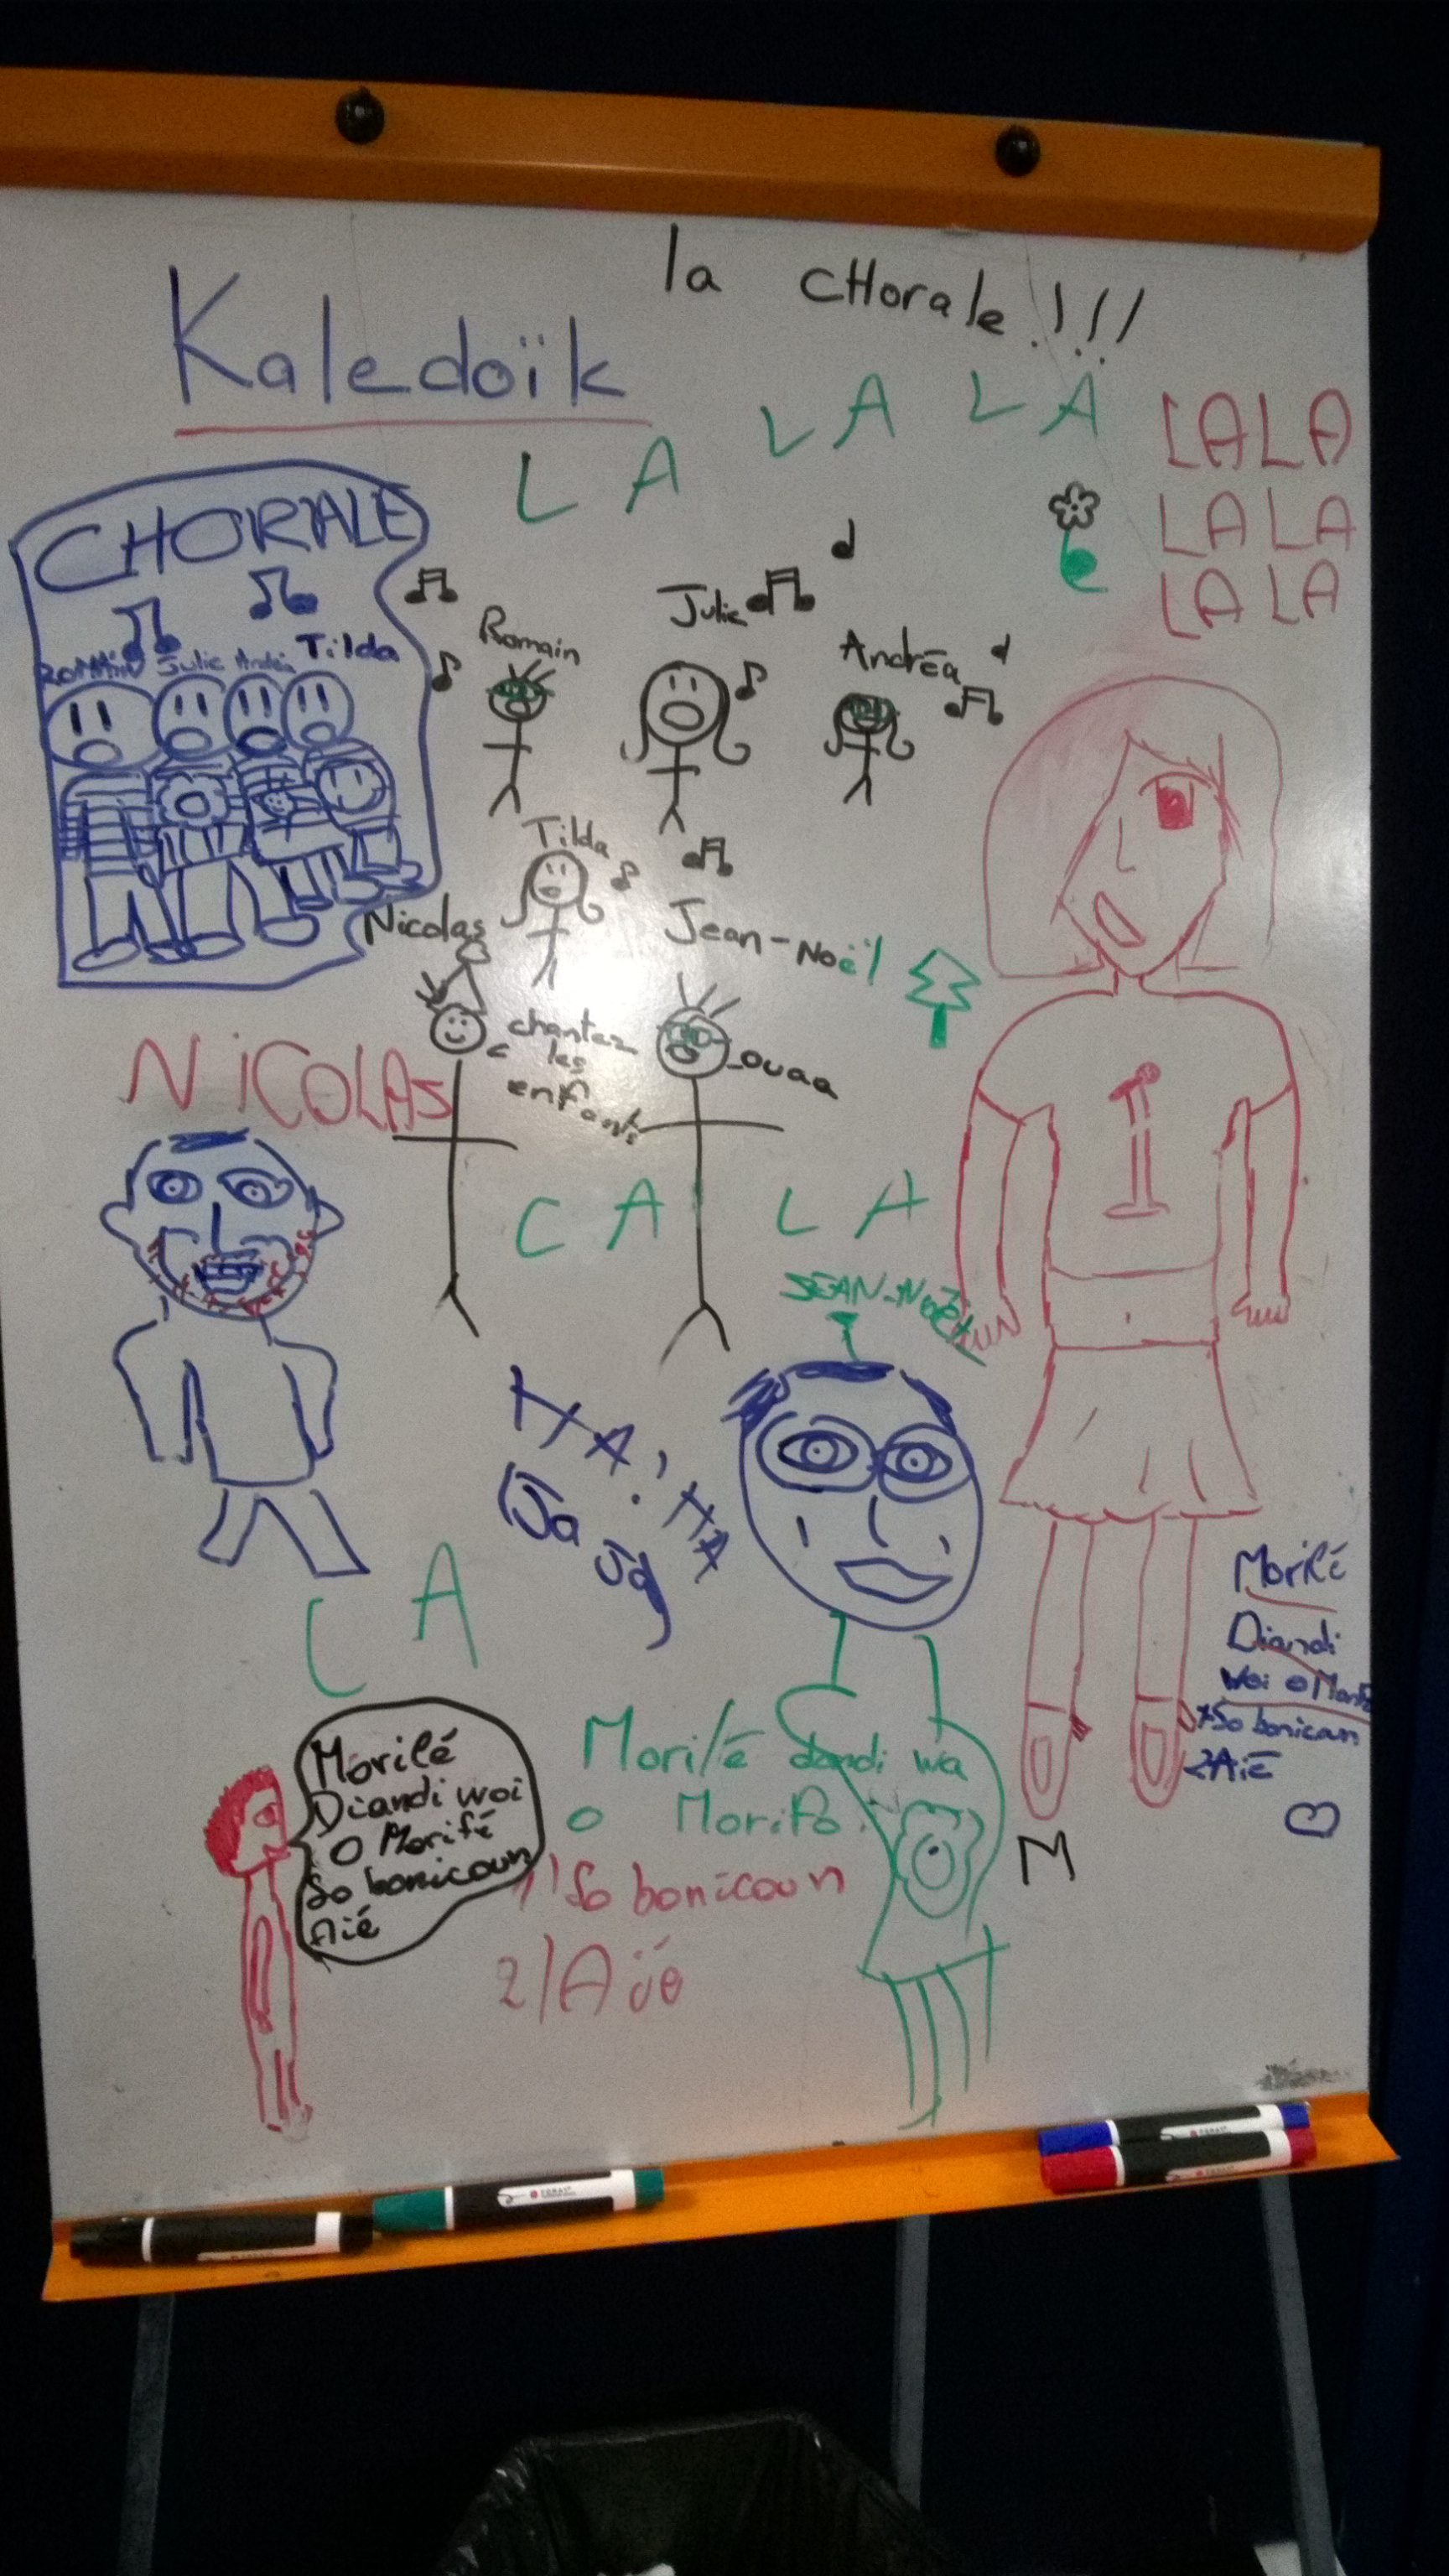 la CHorale !!!
Kaledoïk
LA LA LA
LALA
LALA
LALA
CHORALE
ROMAIN Julie Andréa Tilda
Romain
Julie
Andréa
Tilda
Nicolas
Jean-Noël
chantez
les
enfants
ouaa
NiCOLAS
LA LA
JEAN-NOËL
HA! HA
(Ja Ja
LA
Morilé
Diandi woi
O Morifé
So bonicoun
Aié
Morilé dandi wa
o Morifo
1/ So bonicoun
2/ Aïé
Morilé
Diandi
woi o Morifo
So bonicoun
2Aié
M